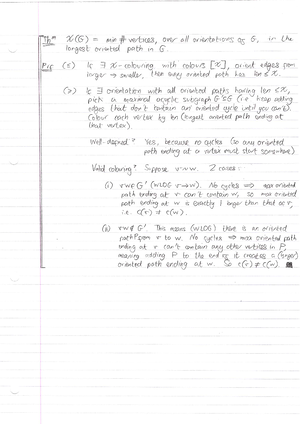 Thm χ(G) = min # vertices, over all orientations of G, in the
longest oriented path in G.
Prf (≤) If ∃ χ-colouring with colours [χ], orient edges from
larger → smaller, then any oriented path has len ≤ χ.
(≥) If ∃ orientation with all oriented paths having len ≤ χ,
pick a maximal acyclic subgraph G'⊆G (i.e. keep adding
edges that don't contain an oriented cycle until you can't).
Colour each vertex by len (longest oriented path ending at
Well-defined? Yes, because no cycles (so any oriented
path ending at a vertex must start somewhere)
Valid colouring? Suppose v~w. 2 cases:
(i) vw∈G' (WLOG v→w). No cycles ⟹ max oriented
path ending at v can't contain w, so max oriented
path ending at w is exactly 1 longer than that at v,
i.e. c(v) ≠ c(w).
(ii) vw∉G'. This means (WLOG) there is an oriented
path P from v to w. No cycles ⟹ max oriented path
ending at v can't contain any other vertices in P,
meaning adding P to the end of it creates a (longer)
oriented path ending at w. So c(v) ≠ c(w).